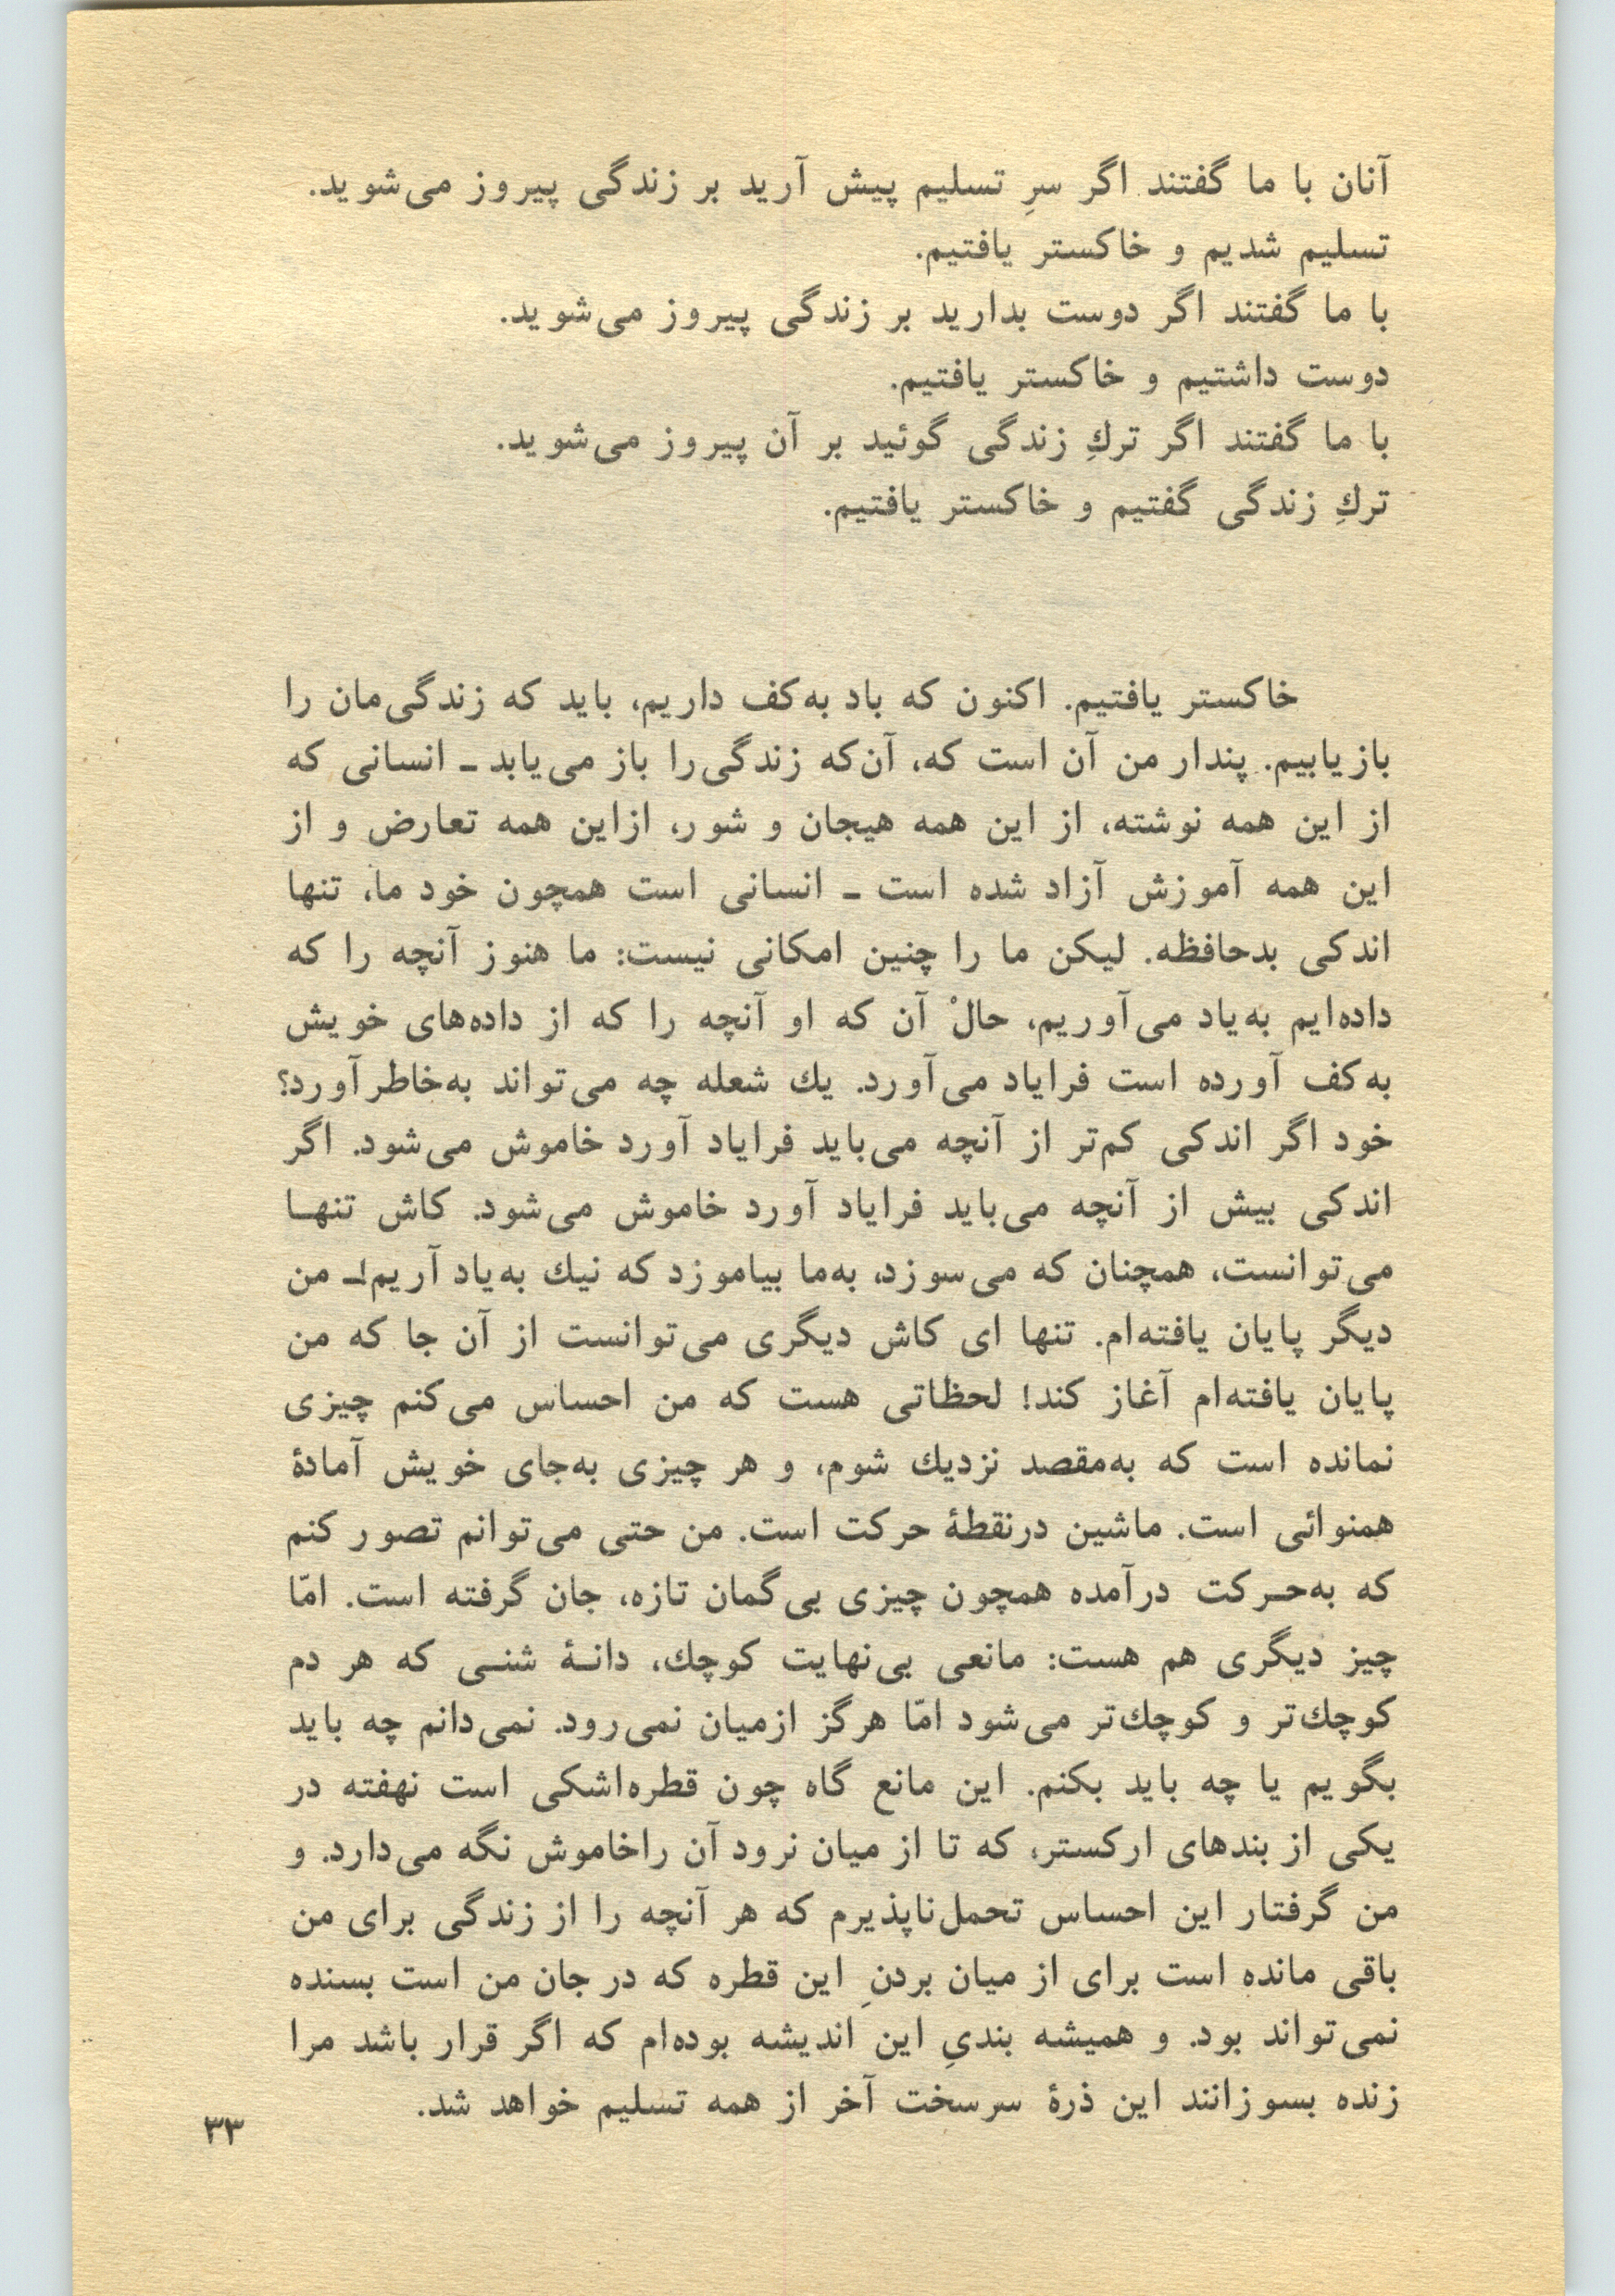 آنان با ما گفتند اگر سرِ تسلیم پیش آرید بر زندگی پیروز می‌شوید.
تسلیم شدیم و خاکستر یافتیم.
با ما گفتند اگر دوست بدارید بر زندگی پیروز می‌شوید.
دوست داشتیم و خاکستر یافتیم.
با ما گفتند اگر تركِ زندگی گوئید بر آن پیروز می‌شوید.
تركِ زندگی گفتیم و خاکستر یافتیم.
خاکستر یافتیم. اکنون که باد به‌کف داریم، باید که زندگی‌مان را
بازیابیم. پندار من آن است که، آن‌که زندگی‌را باز می‌یابد ـ انسانی که
از این همه نوشته، از این همه هیجان و شور، ازاین همه تعارض و از
این همه آموزش آزاد شده است ـ انسانی است همچون خود ما، تنها
اندکی بدحافظه. لیکن ما را چنین امکانی نیست: ما هنوز آنچه را که
داده‌ایم به‌یاد می‌آوریم، حالْ آن که او آنچه را که از داده‌های خویش
به‌کف آورده است فرایاد می‌آورد. یك شعله چه می‌تواند به‌خاطرآورد؟
خود اگر اندکی کم‌تر از آنچه می‌باید فرایاد آورد خاموش می‌شود. اگر
اندکی بیش از آنچه می‌باید فرایاد آورد خاموش می‌شود. کاش تنهـا
می‌توانست، همچنان که می‌سوزد، به‌ما بیاموزد که نیك به‌یاد آریم!ـ من
دیگر پایان یافته‌ام. تنها ای کاش دیگری می‌توانست از آن جا که من
پایان یافته‌ام آغاز کند! لحظاتی هست که من احساس می‌کنم چیزی
نمانده است که به‌مقصد نزدیك شوم، و هر چیزی به‌جای خویش آمادهٔ
همنوائی است. ماشین درنقطهٔ حرکت است. من حتی می‌توانم تصور کنم
که به‌حـرکت درآمده همچون چیزی بی‌گمان تازه، جان گرفته است. امّا
چیز دیگری هم هست: مانعی بی‌نهایت کوچك، دانـهٔ شنـی که هر دم
کوچك‌تر و کوچك‌تر می‌شود امّا هرگز ازمیان نمی‌رود. نمی‌دانم چه باید
بگویم یا چه باید بکنم. این مانع گاه چون قطره‌اشکی است نهفته در
یکی از بندهای ارکستر، که تا از میان نرود آن راخاموش نگه می‌دارد. و
من گرفتار این احساس تحمل‌ناپذیرم که هر آنچه را از زندگی برای من
باقی مانده است برای از میان بردنِ این قطره که در جان من است بسنده
نمی‌تواند بود. و همیشه بندیِ این اندیشه بوده‌ام که اگر قرار باشد مرا
زنده بسوزانند این ذرهٔ سرسخت آخر از همه تسلیم خواهد شد.
۳۳